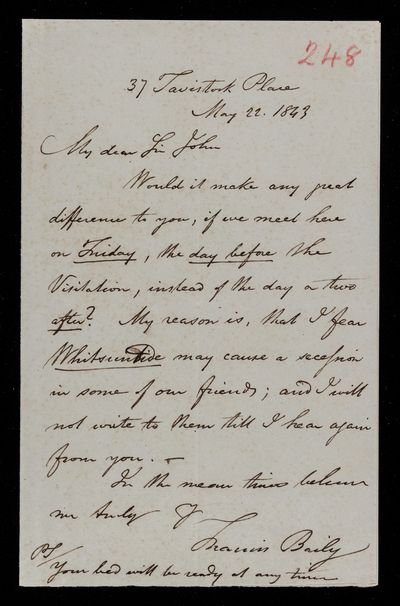 248
37 Tavistock Place
May 22. 1843
My dear Sir John
Would it make any great
difference to you, if we meet here
on Friday, the day before the
Visitation, instead of the day or two
after? My reason is, that I fear
Whitsuntide may cause a secession
in some of our friends; and I will
not write to them till I hear again
from you. —
In the mean time believe
me truly y
Francis Baily
PS/
Your bed will be ready at any time